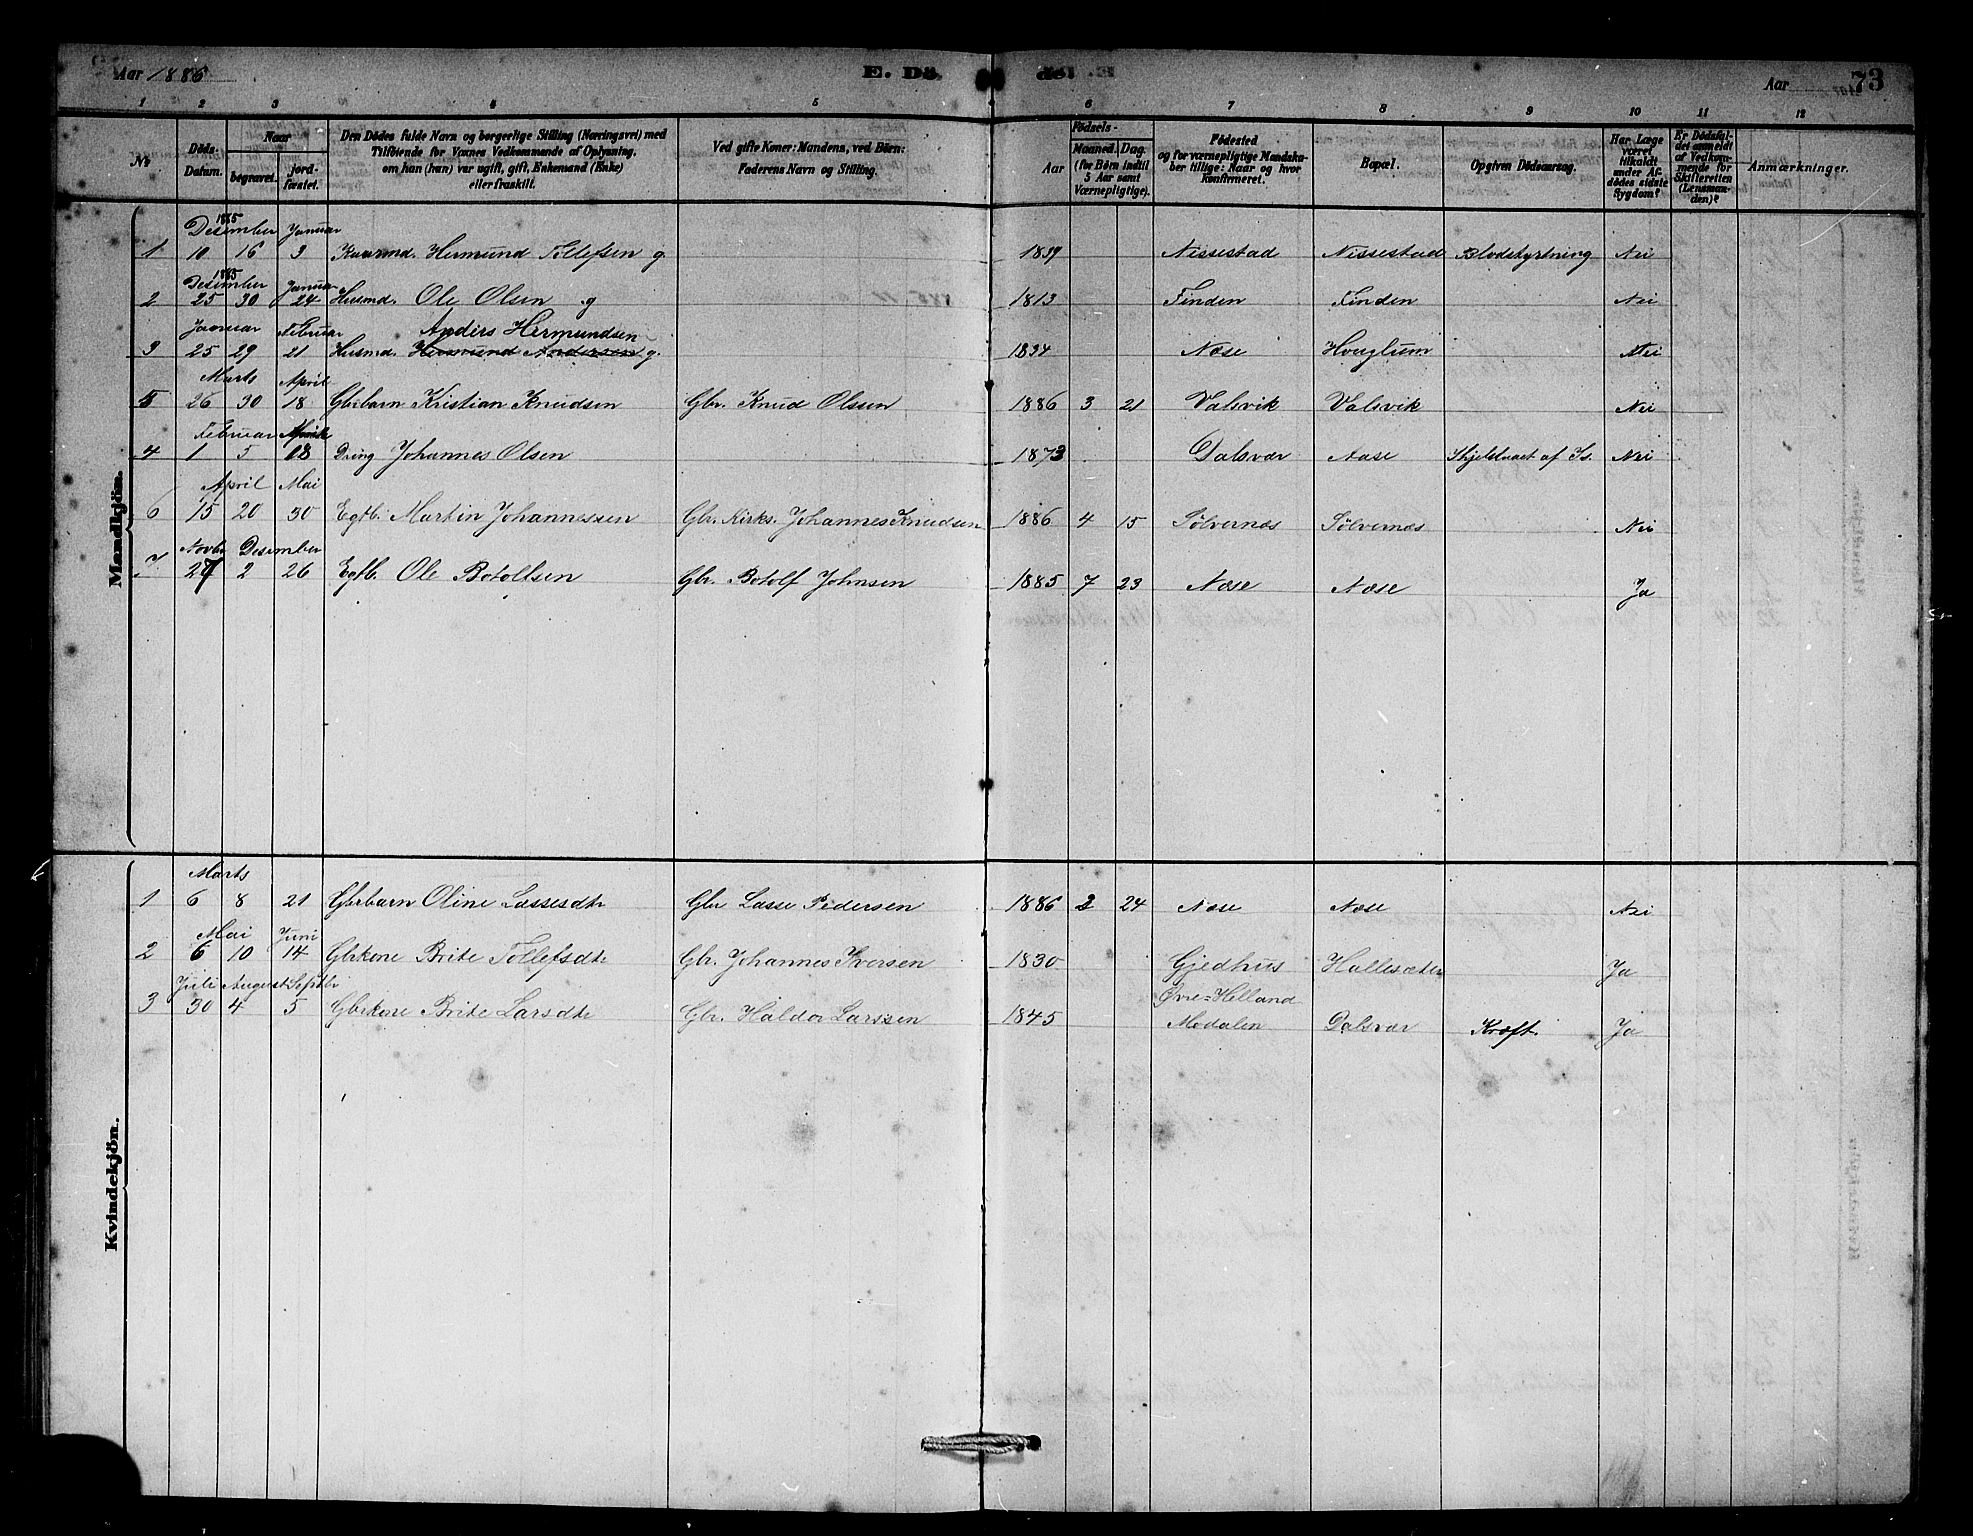 Aar 1886 E. Dö- de: Aar 73
1 2 3 4 5 6 7 8 9 10 11 12
No
Döds-Datum.
Naar
begravet.
jord-fæstet.
Den Dödes fulde Navn og borgerlige Stilling (Næringsvei) med
Tilföiende for Voxnes Vedkommende af Oplysning,
om han (hun) var ugift, gift, Enkemand (Enke)
eller fraskilt.
Ved gifte Koner: Mandens, ved Börn:
Faderens Navn og Stilling.
Födsels-
Aar
Maaned. Dag.
(for Börn indtil
5 Aar samt
Værnepligtige).
Födested
og for værnepligtige Mandska-
ber tillige: Naar og hvor
konfirmeret.
Bopæl.
Opgiven Dödsaarsag.
Har Læge
været
tilkaldt
under Af-
dödes sidste
Sygdom?
Er Dödsfal-
det anmeldt
af Vedkom-
mende for
Skifteretten
(Lensman-
den)?
Anmærkninger.
Mandkjön.
1885
Desember Januar
1 10 16 3 Kaarmd. Hermund Tollefsen g. 1839 Nissestad Nissestad Blodstyrtning Nei
1885
Desember Januar
2 25 30 24 Husmd. Ole Olsen g 1813 Finden Finden Nei
Januar Februar Anders Hermundsen
3 25 29 21 Husmd. Hermund Andersen g. 1834 Næse Houglum Nei
Marts April
5 26 30 18 Gbrbarn Kristian Knudsen Gbr. Knud Olssen 1886 3 21 Valsvik Valsvik Nei
Februar April
4 1 5 18 Dreng Johannes Olsen 1873 Dalsvær Aase Ihjelslaaet af Is. Nei
April Mai
6 15 20 30 Egtb. Martin Johannessen Gbr. Kirks. Johannes Knudsen 1886 4 15 Sølvernæs Sølvernæs Nei
Novbr Desember
7 27 2 26 Egtb. Ole Botolfsen Gbr. Botolf Johnsen 1885 7 23 Næse Næse Ja
Kvindekjön.
Marts
1 6 8 21 Gbrbarn Oline Lassesdtr Gbr Lasse Pedersen 1886 2 24 Næse Næse Nei
Mai Juni
2 6 10 14 Gbrkone Brite Tollefsdtr Gbr. Johannes Iversen 1830 Gjedhus Hallesæter Ja
Juli August Septbr Øvre-Helland
3 30 4 5 Gbrkone Brite Larsdtr Gbr. Haldor Larssen 1845 Modalen Dalsvær Kræft. Ja